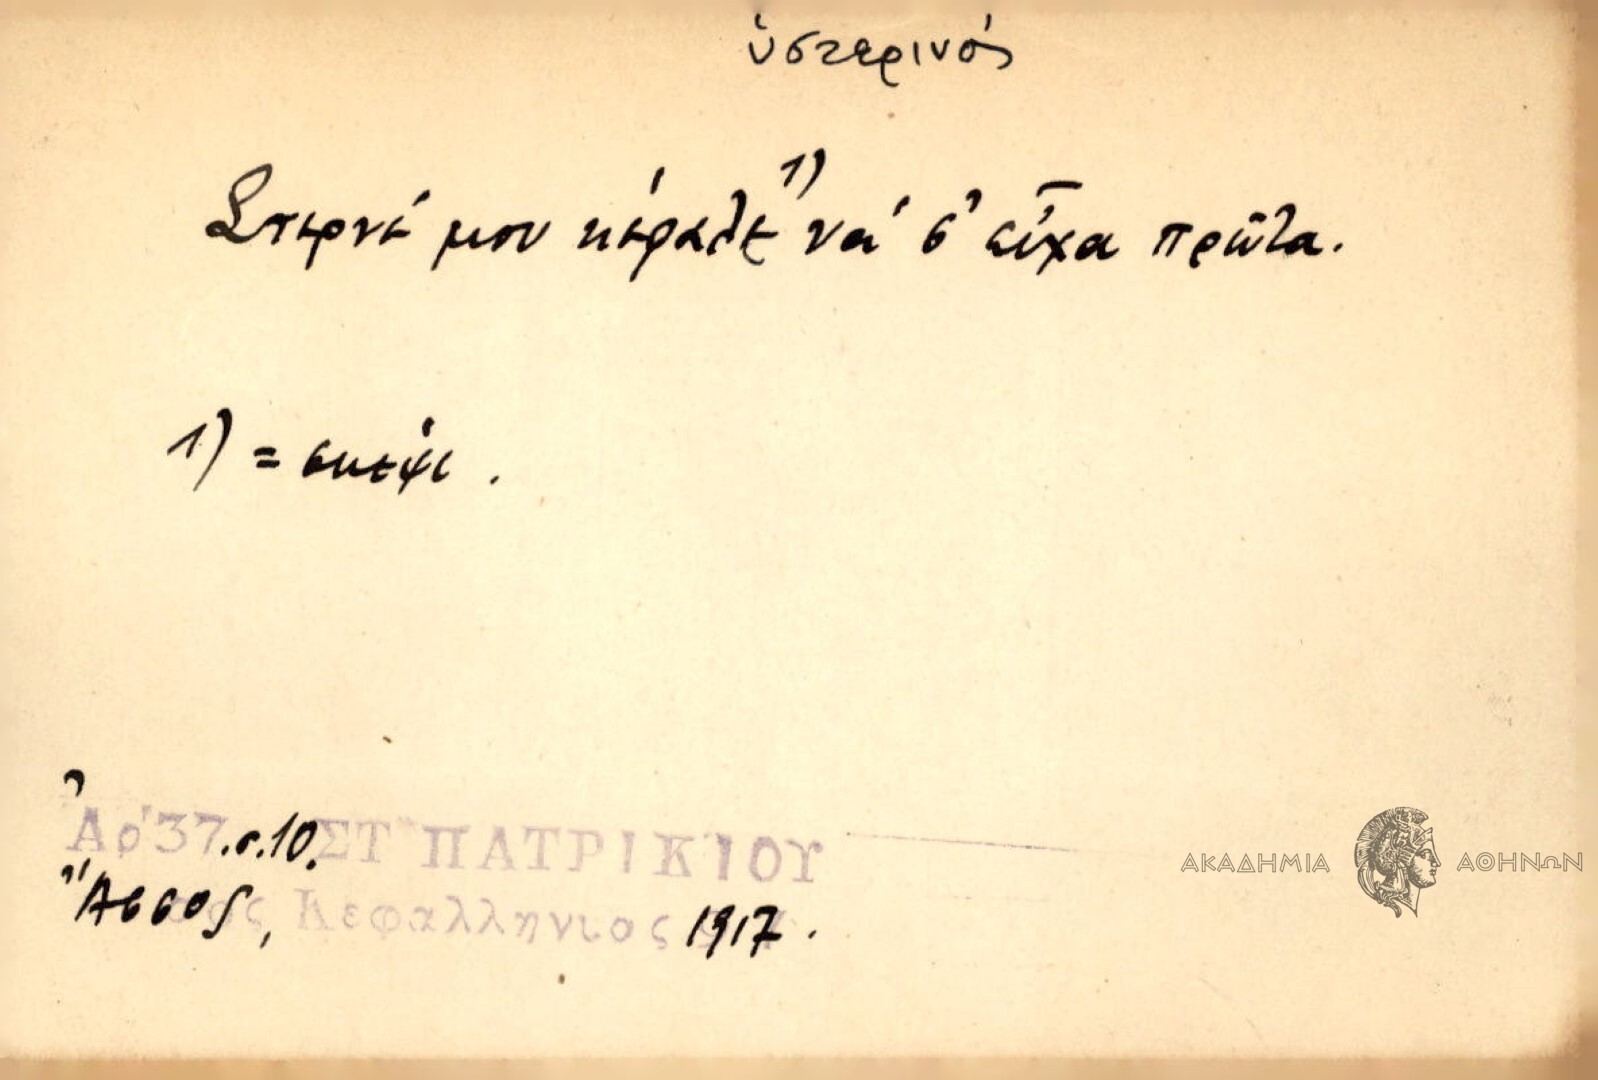 ὑστερινός
Στερνέ μου κέφαλε 1) νά σ' εἶχα πρῶτα.
1) = σκέψι.
Ἀρ. 37. σ. 10. ΣΤ ΠΑΤΡΙΚΙΟΥ
Ἄσσος, Κεφαλληνιας 1917.
ΑΚΑΔΗΜΙΑ ΑΘΗΝΩΝ